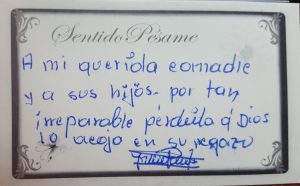 Sentido Pésame
A mi querida comadre
y a sus hijos. por tan
irreparable pérdida q Dios
lo acoja en su regazo